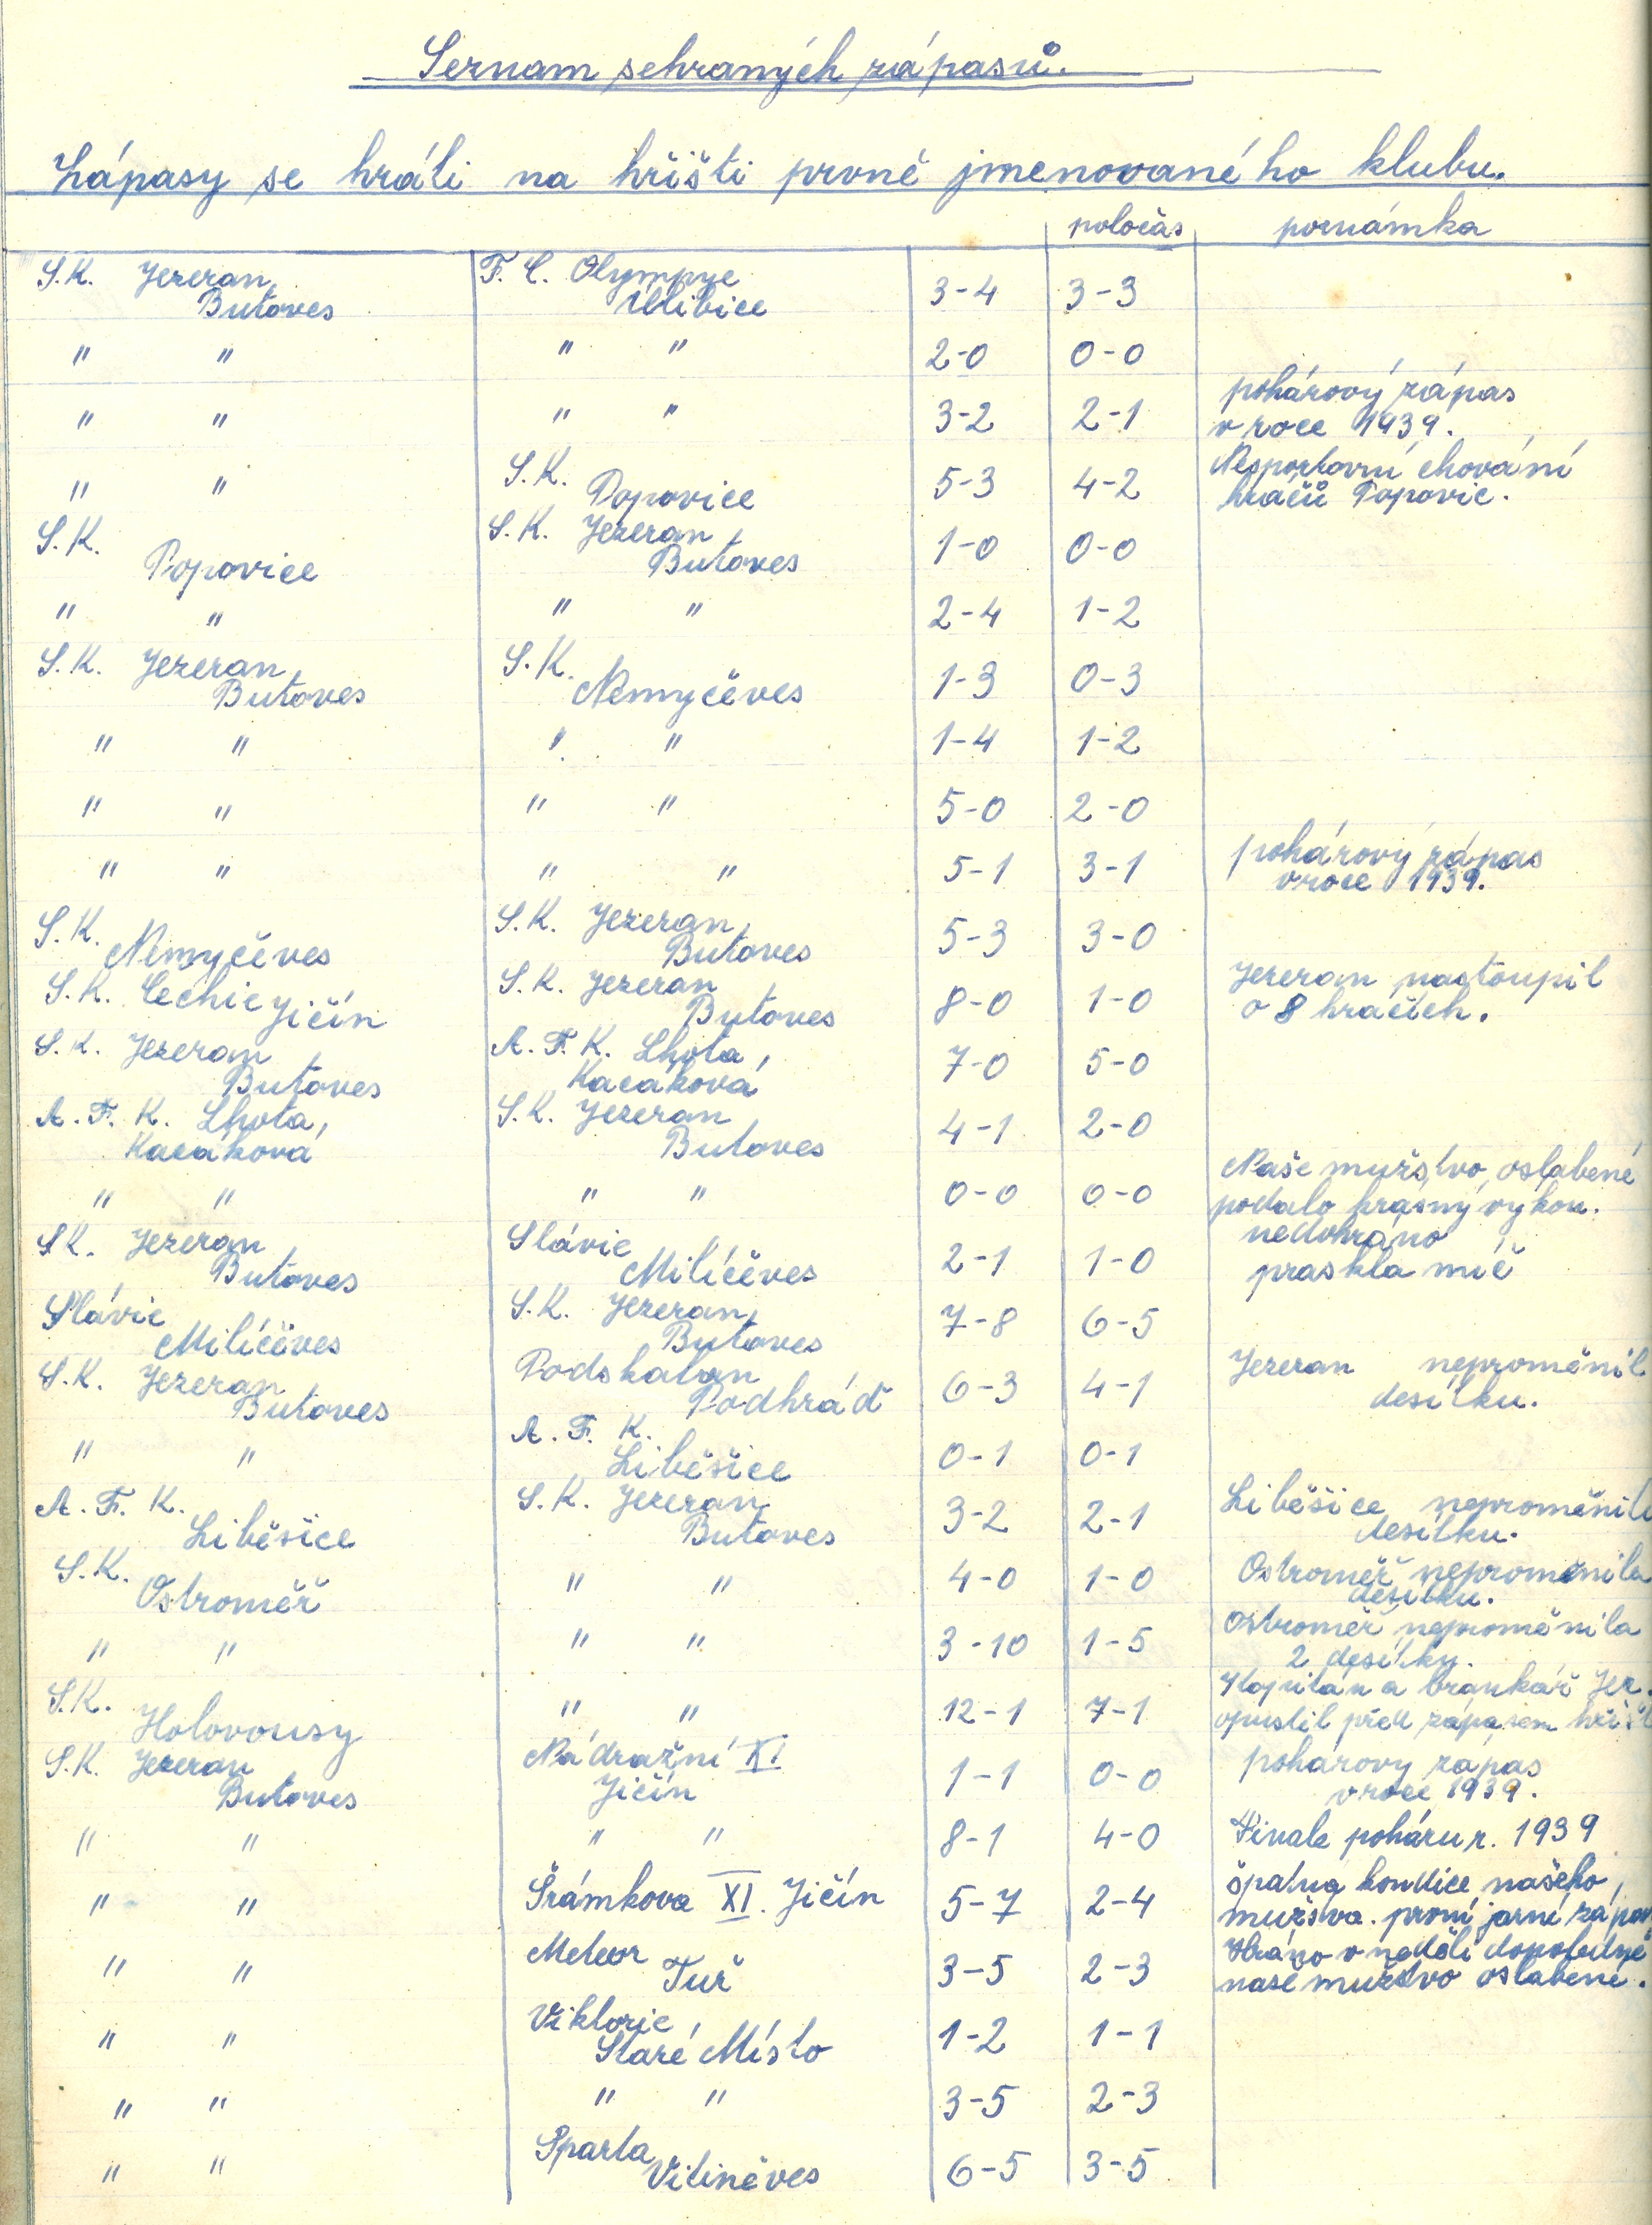 Seznam sehraných zápasů.
Zápasy se hráli na hřišti prvně jmenovaného klubu.
poločas poznámka
S.K. Jezeran, Butoves F. C. Olympye Úlibice 3-4 3-3
" " " " 2-0 0-0
" " " " 3-2 2-1 pohárový zápas v roce 1939.
" " S.K. Popovice 5-3 4-2 Nesportovní chování hráčů Popovic.
S.K. Popovice S.K. Jezeran, Butoves 1-0 0-0
" " " " 2-4 1-2
S.K. Jezeran, Butoves S.K. Nemyčěves 1-3 0-3
" " " " 1-4 1-2
" " " " 5-0 2-0
" " " " 5-1 3-1 pohárový zápas v roce 1939.
S.K. Nemyčěves S.K. Jezeran, Butoves 5-3 3-0
S.K. Čechie Jičín S.K. Jezeran, Butoves 8-0 1-0 Jezeran nastoupil o 8 hráčích.
S.K. Jezeran, Butoves A.F.K. Lhota, Kacákova 7-0 5-0
A.F.K. Lhota, Kacákova S.K. Jezeran Butoves 4-1 2-0
" " " " 0-0 0-0 Naše mužstvo oslabené podalo krásný výkon.
S.K. Jezeran, Butoves Slávie Milíčěves 2-1 1-0 nedohráno praskla míč
Slávie Milíčěves S.K. Jezeran, Butoves 7-8 6-5
S.K. Jezeran, Butoves Podskalan Podhráď 6-3 4-1 Jezeran neproměnil desítku.
" " A.F.K. Liběšice 0-1 0-1
A.F.K. Liběšice S.K. Jezeran, Butoves 3-2 2-1 Liběšice neproměnili desítku.
S.K. Ostroměř " " 4-0 1-0 Ostroměř neproměnila desítku.
" " " " 3-10 1-5 Ostroměř neproměnila 2 desítky.
S.K. Holovousy " " 12-1 7-1 Kapitán a brankář Jez. opustil před zápasem
S.K. Jezeran Butoves Nádražní XI Jičín 1-1 0-0 pohárový zápas v roce 1939.
" " " " 8-1 4-0 Finale poháru r. 1939
" " Šrámkova XI. Jičín 5-7 2-4 špatná kondice našeho mužsva. první jarní zápas
" " Meteor Tuř 3-5 2-3 Hráno v neděli dopoledne naše mužstvo oslabené.
" " Viktorie, Staré Místo 1-2 1-1
" " " " 3-5 2-3
" " Sparta Vitiněves 6-5 3-5